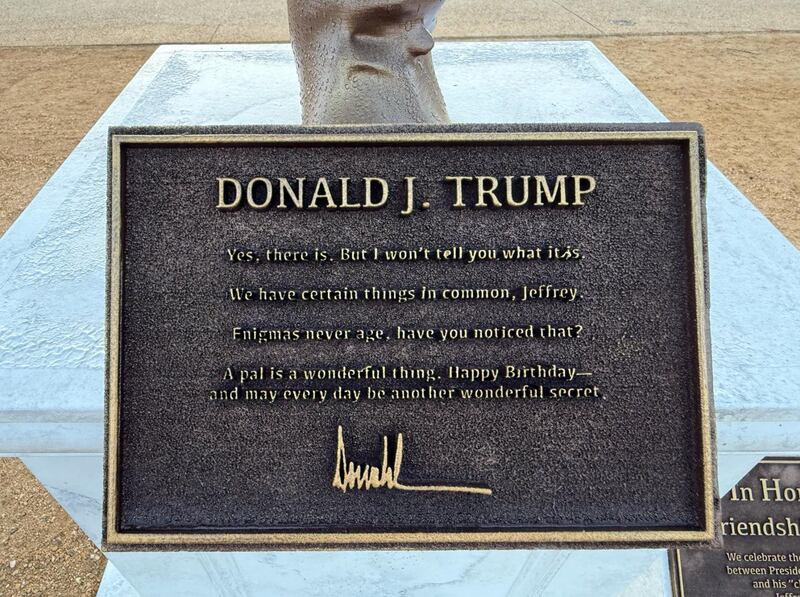 DONALD J. TRUMP
Yes, there is. But I won't tell you what it is.
We have certain things in common, Jeffrey.
Enigmas never age, have you noticed that?
A pal is a wonderful thing. Happy Birthday—
and may every day be another wonderful secret.
Donald
In Ho
riendsh
We celebrate the
between Preside
and his "c